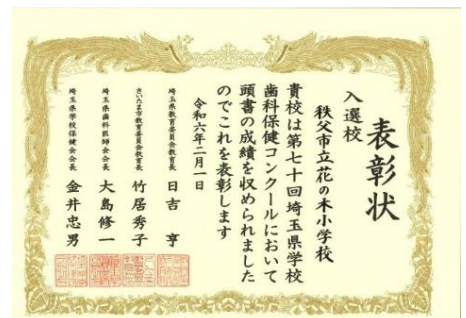 表彰状
入選校
秩父市立花の木小学校
貴校は第七十回埼玉県学校
歯科保健コンクールにおいて
頭書の成績を収められました
のでこれを表彰します
令和六年二月一日
埼玉県教育委員会教育長 日吉亨
さいたま市教育委員会教育長 竹居秀子
埼玉県歯科医師会会長 大島修一
埼玉県学校保健会会長 金井忠男